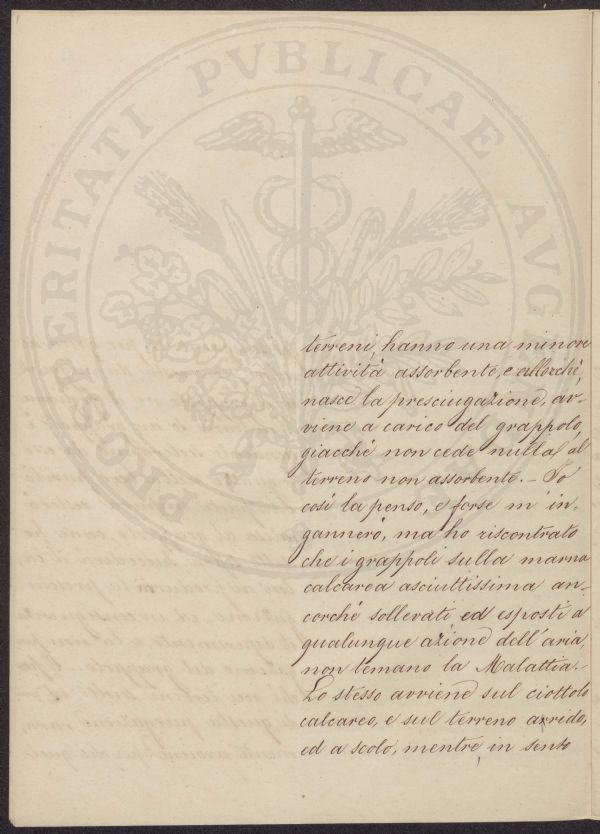 PROSPERITATI PVBLICAE AVG
terreni, hanno una minore
attività assorbente, e allorchè
nasce la presciugazione, av-
viene a carico del grappolo,
giacchè non cede nulla al
terreno non assorbente. - Io
così la penso, e forse m'in-
gannerò, ma ho riscontrato
che i grappoli sulla marna
calcarea asciuttissima an-
corchè sollevati ed esposti a
qualunque azione dell'aria,
non temano la Malattia. -
Lo stesso avviene sul ciottolo
calcareo, e sul terreno arrido,
ed a scolo, mentre, in senso